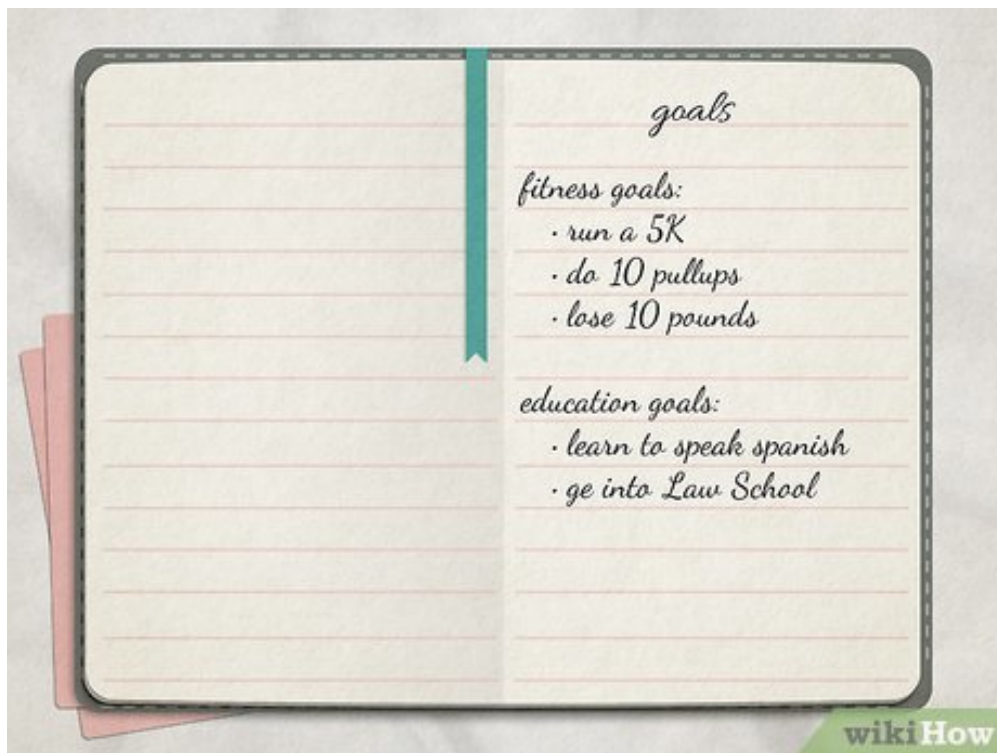 goals
fitness goals:
· run a 5K
· do 10 pullups
· lose 10 pounds
education goals:
· learn to speak spanish
· ge into Law School
wikiHow